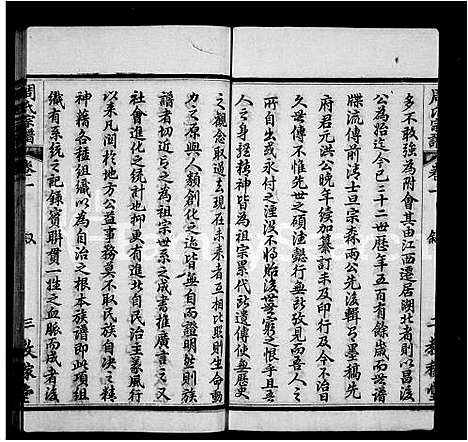 周氏宗譜
卷一
叙
多不敢強為附會其由江西遷居湖北者則以昌後
公為始迄今已三十二世歷年五百有餘歲而世譜
牒流傳前清士旦宗森兩公先後輯
府君元洪公晚年績加纂訂未及印行今不治日
久世傳不惟先世之積德懿行無所攷見而吾人之
所自出或永付之湮没不將貽後世無窮之恨乎歟
人之身挺精神皆為祖宗累代所遺使無歷史
之觀念取過去現在未來者互相比照則生命
力之原與人類創化之迹皆無自而證明然則民族
譜者切近言之為祖宗世系之成書推廣言之又
社會進化之統計也抑更有進北自民治主義風行
以來凡關於地方公益事務莫不取民族自決之精
神精各種組織以為自治之根本族譜即此項組
織有系統之記錄實聯貫一姓之血脈而成者後
周氏宗譜
卷一
叙
三
敦睦堂